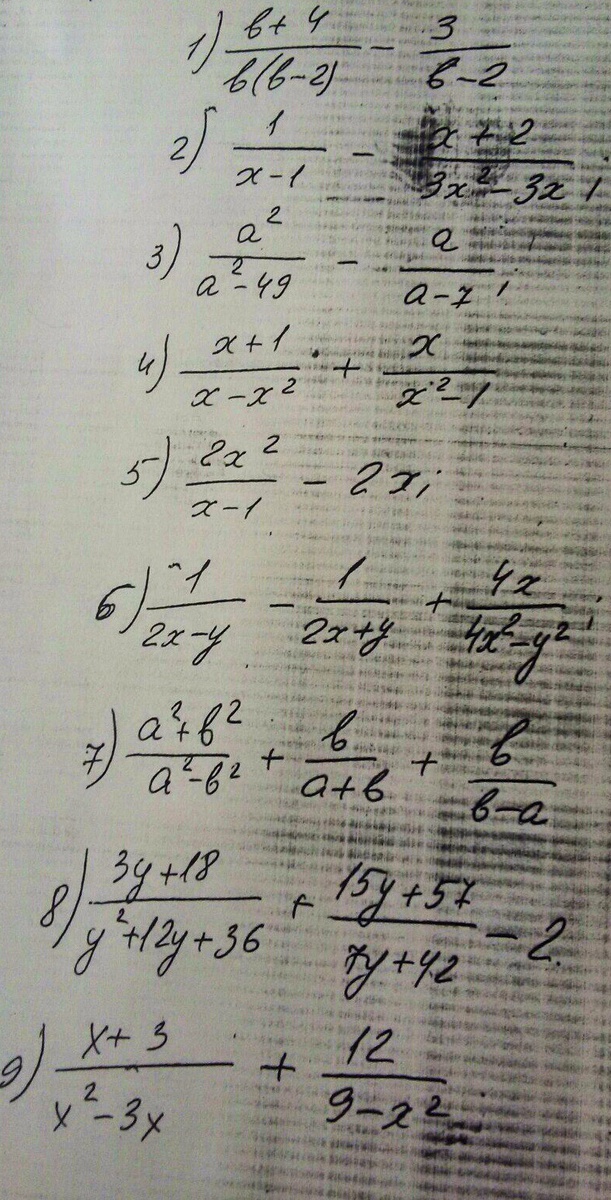 1) (в+4)/(в(в-2)) - 3/(в-2)
2) 1/(x-1) - (x+2)/(3x²-3x);
3) a²/(a²-49) - a/(a-7);
4) (x+1)/(x-x²) + x/(x²-1)
5) 2x²/(x-1) - 2x;
6) 1/(2x-y) - 1/(2x+y) + 4x/(4x²-y²);
7) (a²+в²)/(a²-в²) + в/(a+в) + в/(в-a)
8) (3y+18)/(y²+12y+36) + (15y+57)/(7y+42) - 2.
9) (x+3)/(x²-3x) + 12/(9-x²)